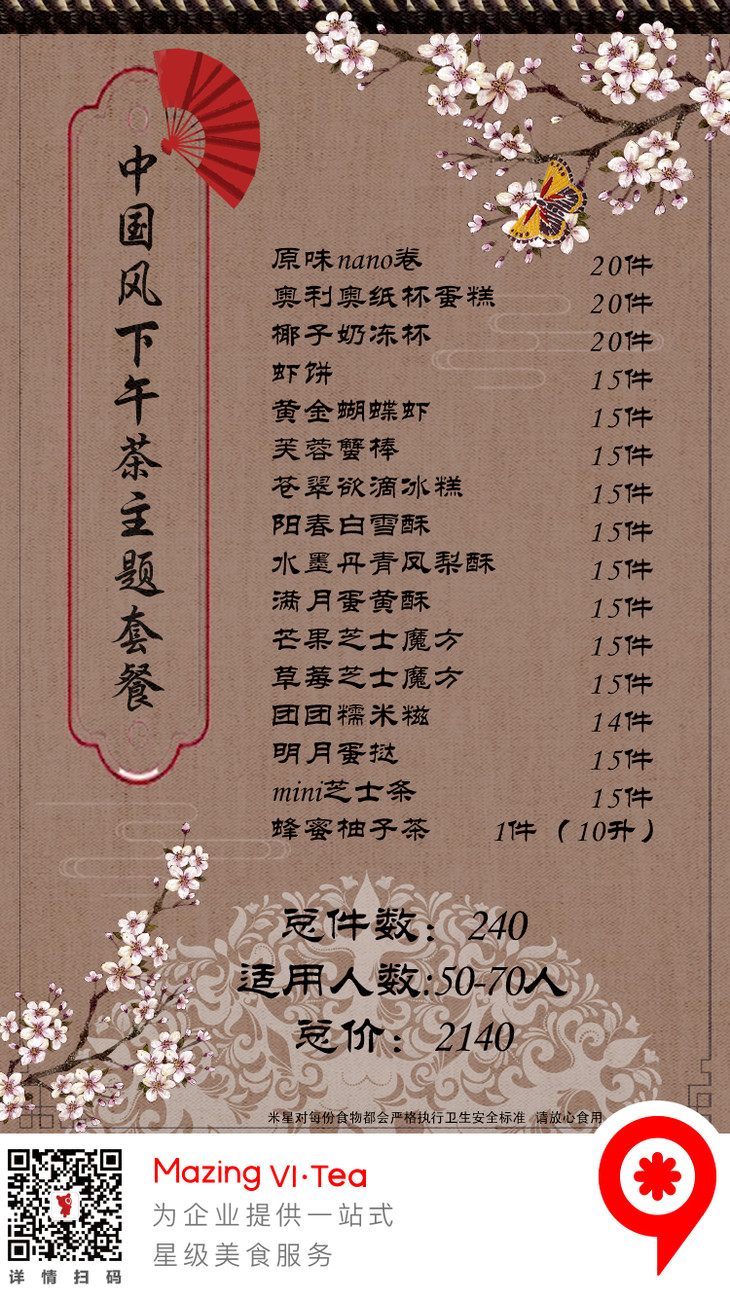 中国风下午茶主题套餐
原味nano卷 20件
奥利奥纸杯蛋糕 20件
椰子奶冻杯 20件
虾饼 15件
黄金蝴蝶虾 15件
芙蓉蟹棒 15件
苍翠欲滴冰糕 15件
阳春白雪酥 15件
水墨丹青凤梨酥 15件
满月蛋黄酥 15件
芒果芝士魔方 15件
草莓芝士魔方 15件
团团糯米糍 14件
明月蛋挞 15件
mini芝士条 15件
蜂蜜柚子茶 1件（10升）
总件数：240
适用人数:50-70人
总价：2140
米星对每份食物都会严格执行卫生安全标准 请放心食用
Mazing VI·Tea
为企业提供一站式
星级美食服务
详情扫码